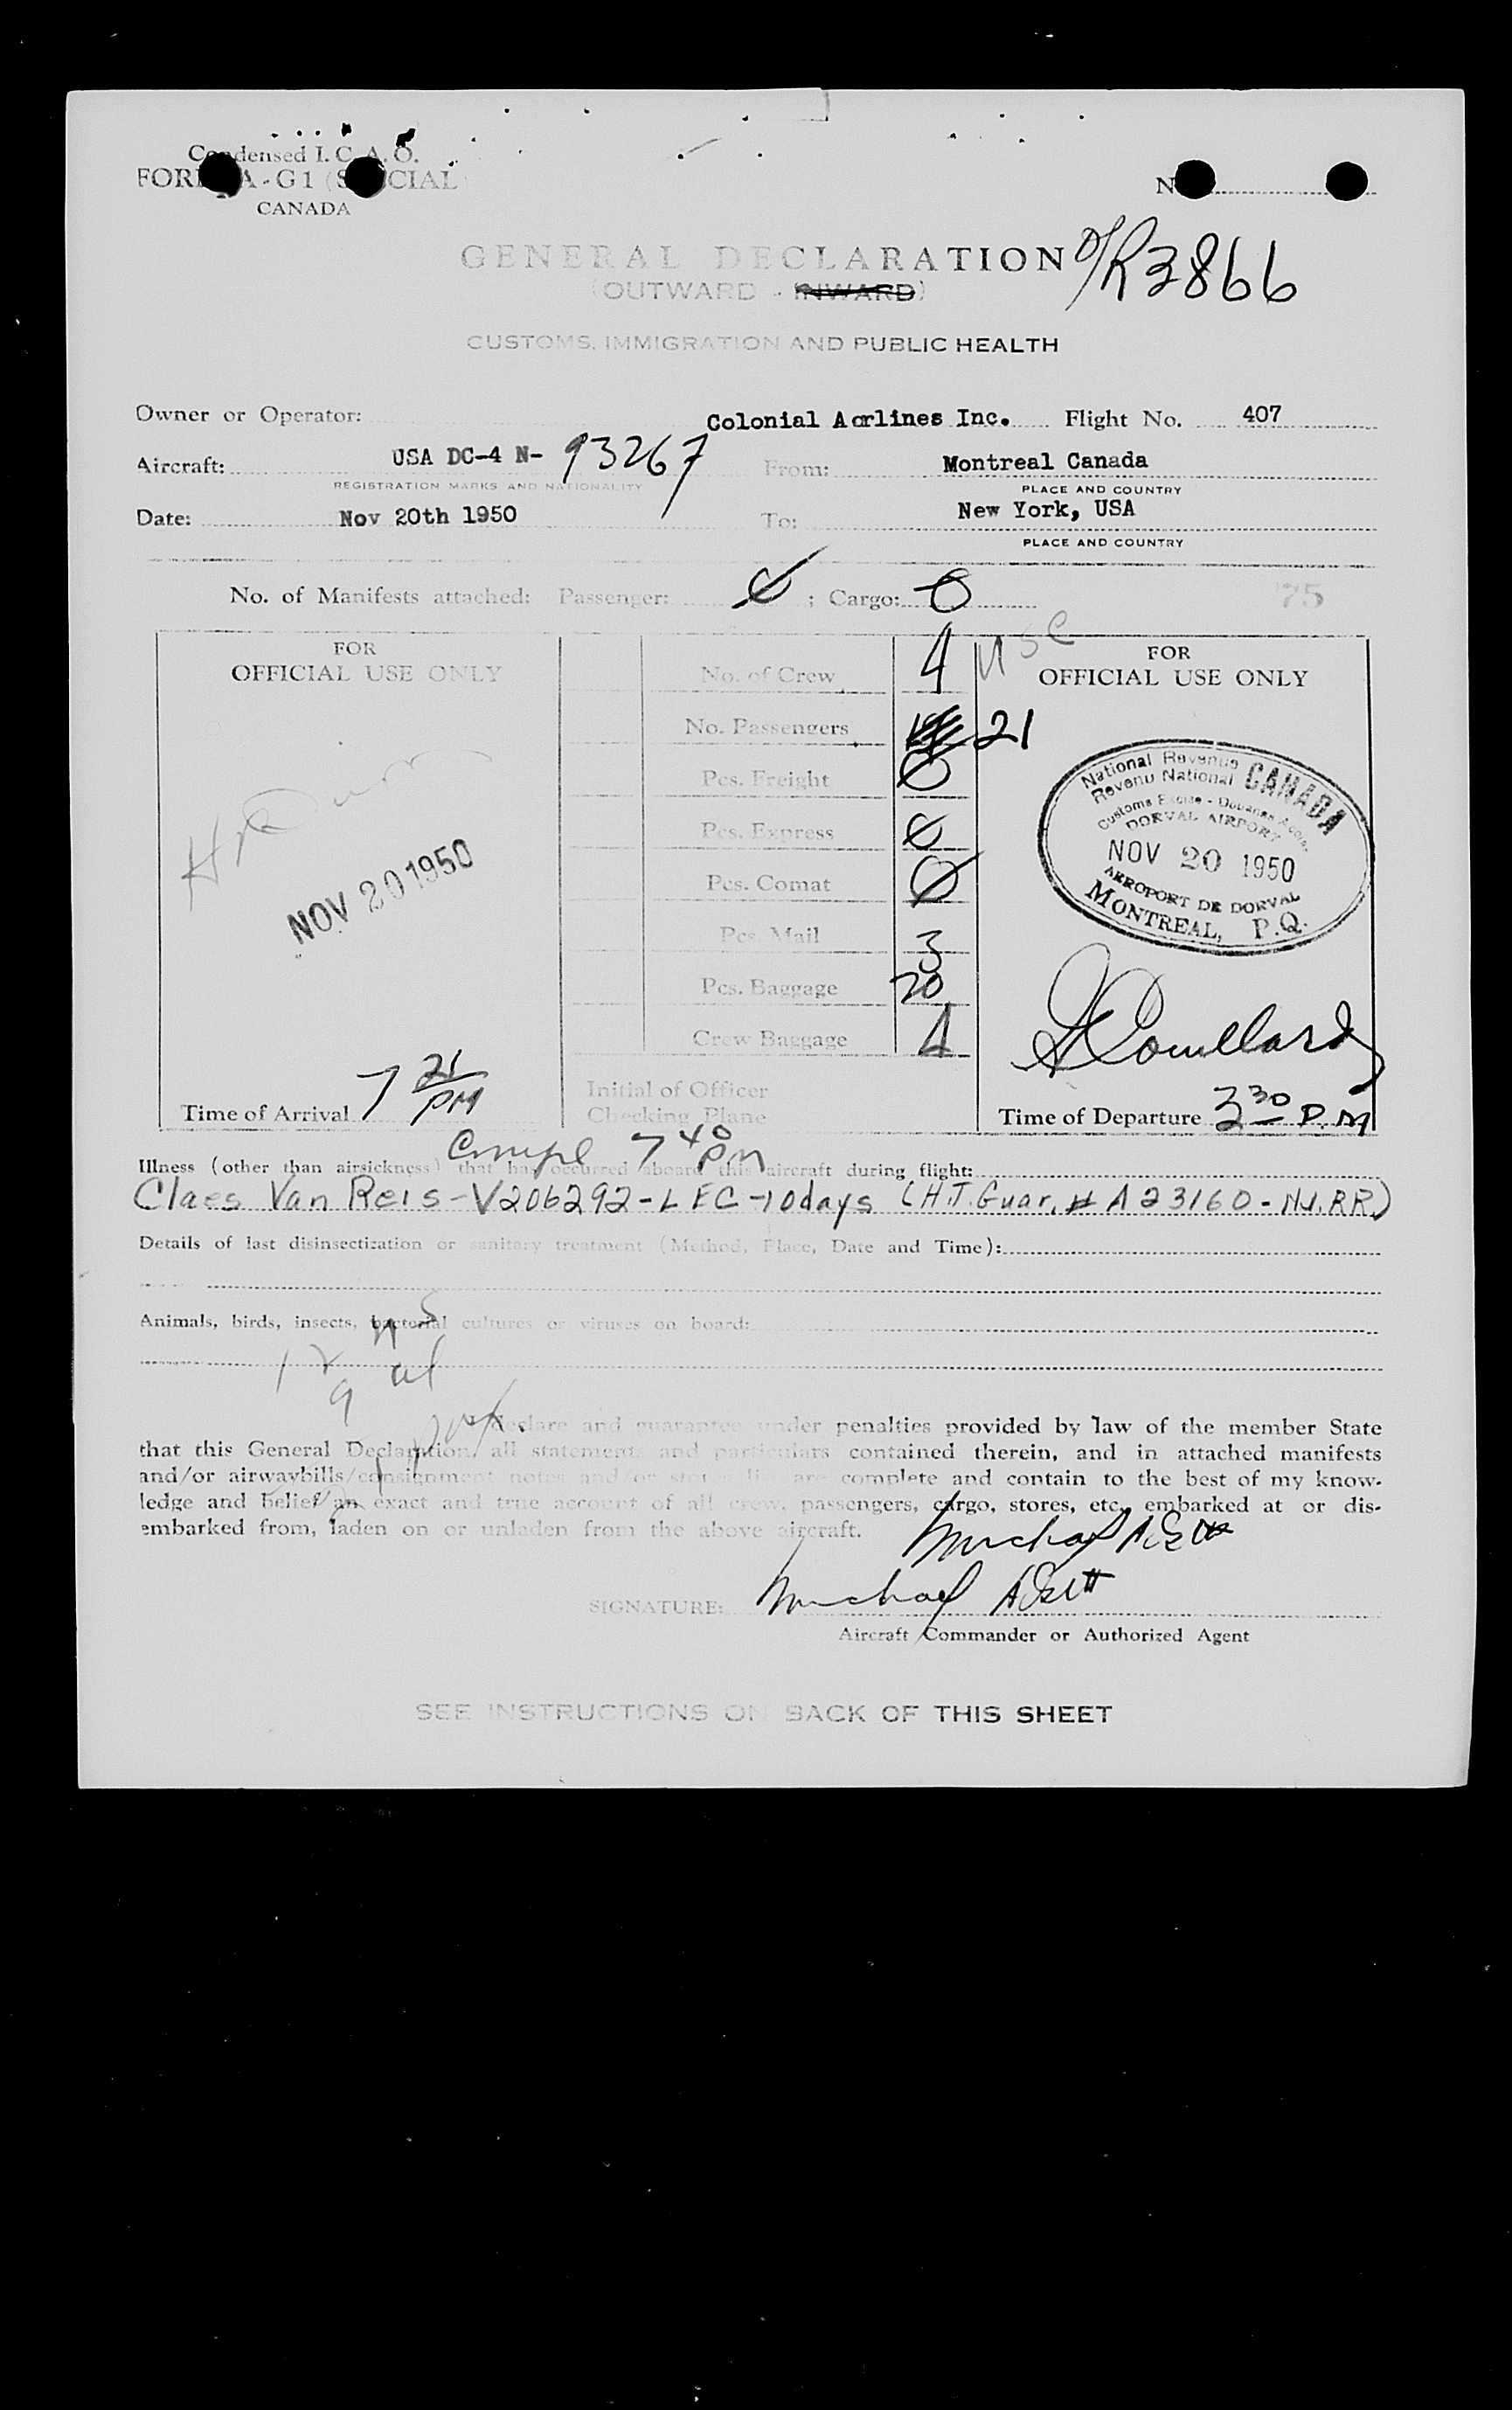 Condensed I. C. A. O.
FORM A-G1 (SPECIAL)
CANADA
GENERAL DECLARATION O/R 3866
(OUTWARD - INWARD)
CUSTOMS, IMMIGRATION AND PUBLIC HEALTH
Owner or Operator: Colonial Aorlines Inc. Flight No. 407
Aircraft: USA DC-4 N- 93267 From: Montreal Canada
REGISTRATION MARKS AND NATIONALITY PLACE AND COUNTRY
Date: Nov 20th 1950 To: New York, USA
PLACE AND COUNTRY
No. of Manifests attached: Passenger: 0 ; Cargo: 0 75
FOR
OFFICIAL USE ONLY
NOV 20 1950
Time of Arrival 7 21 PM
No. of Crew 4 USC
No. Passengers 21
Pcs. Freight 0
Pcs. Express 0
Pcs. Comat 0
Pcs. Mail 3
Pcs. Baggage 20
Crew Baggage 4
Initial of Officer
Checking Plane
FOR
OFFICIAL USE ONLY
National Revenue CANADA
Revenu National
Customs Excise - Douanes Accise
DORVAL AIRPORT
NOV 20 1950
AEROPORT DE DORVAL
MONTREAL, P.Q.
Time of Departure 3 30 P.M
Compl 7 40 PM
Illness (other than airsickness) that has occurred aboard this aircraft during flight:
Claes Van Reis - V206292 - L EC - 10 days (H.J. Guar. # A23160 - NJ. RR.)
Details of last disinsectization or sanitary treatment (Method, Place, Date and Time):
Animals, birds, insects, bacterial cultures or viruses on board:
12 US
9 al
declare and guarantee under penalties provided by law of the member State
that this General Declaration, all statements and particulars contained therein, and in attached manifests
and/or airwaybills/consignment notes and/or stores list are complete and contain to the best of my know-
ledge and belief an exact and true account of all crew, passengers, cargo, stores, etc. embarked at or dis-
embarked from, laden on or unladen from the above aircraft.
SIGNATURE: Michael
Aircraft Commander or Authorized Agent
SEE INSTRUCTIONS ON BACK OF THIS SHEET